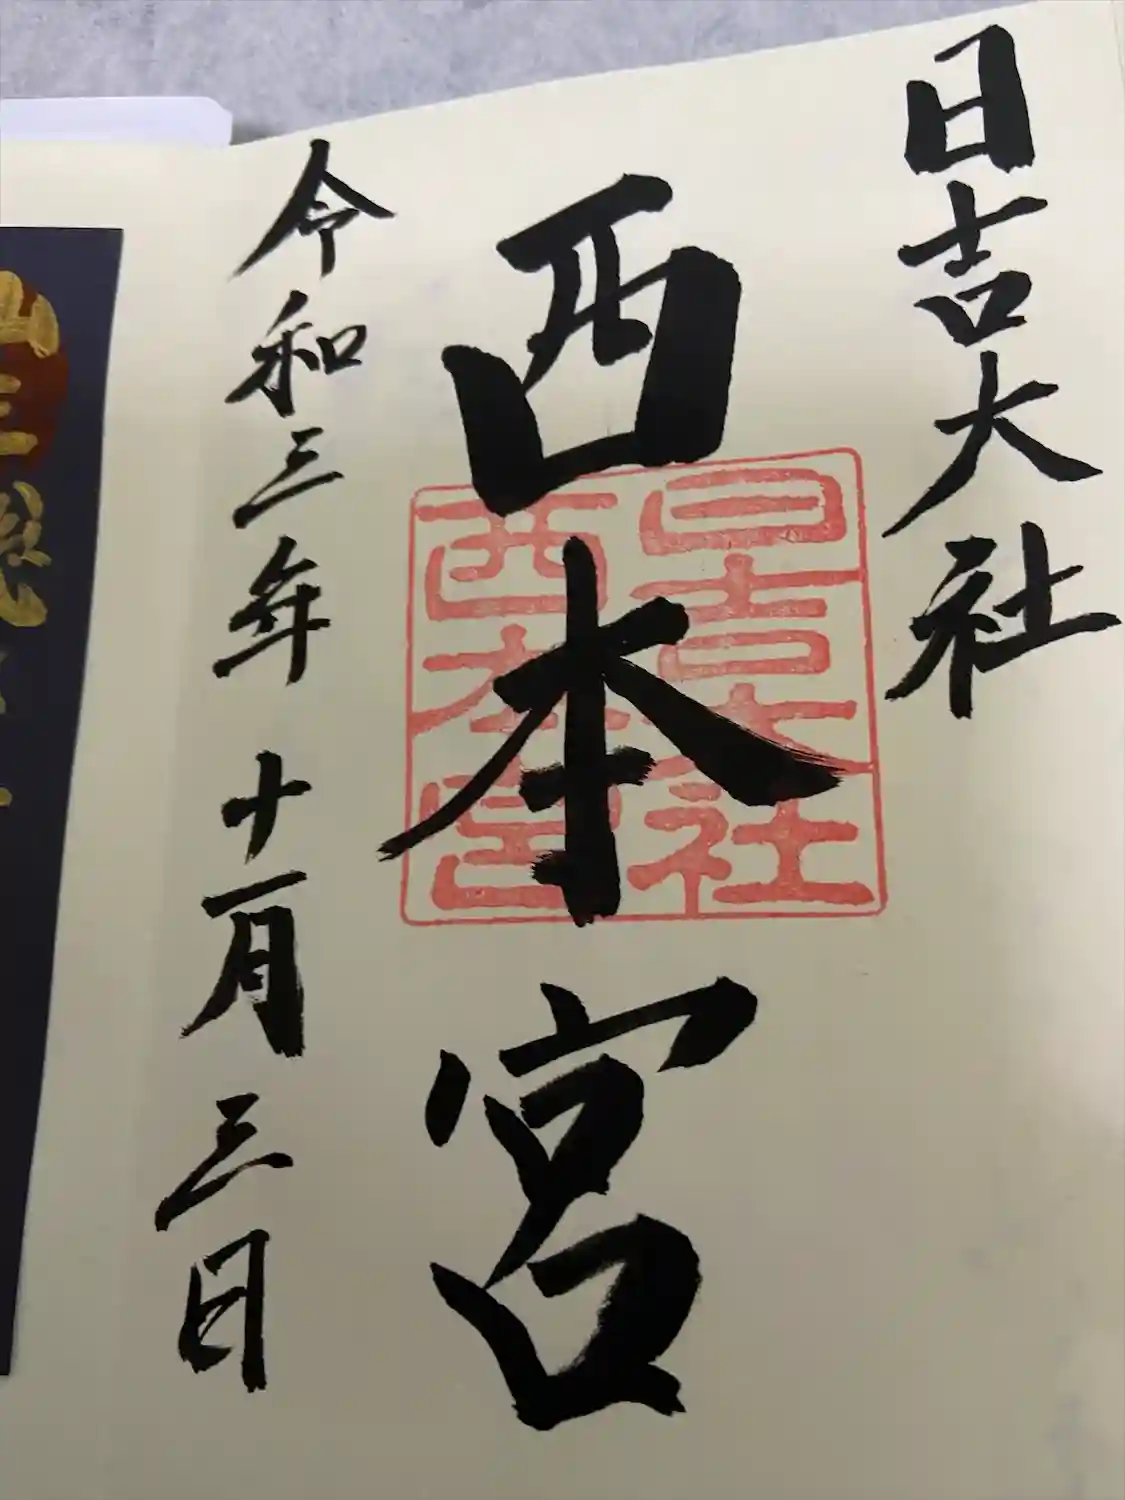 日吉大社
西本宮
日吉大社
西本宮
令和三年 十一月三日